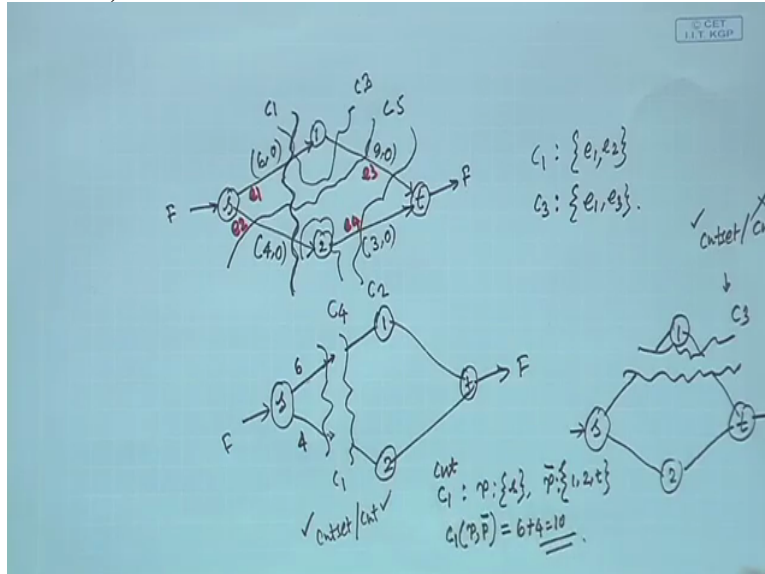 © CET
I.I.T. KGP
C1
C3
C5
(6,0)
1
(9,0)
F
s
e1
e3
t
F
e2
(4,0)
2
e4
(3,0)
C4
C2
C1 : {e1,e2}
C3 : {e1,e3}.
✓ cutset/
C3
1
s
t
2
6
1
F
s
t
F
4
2
C1
✓ cutset/cut ✓
cut
C1 : P:{s}, P̄:{1,2,t}
C1(P,P̄) = 6+4=10